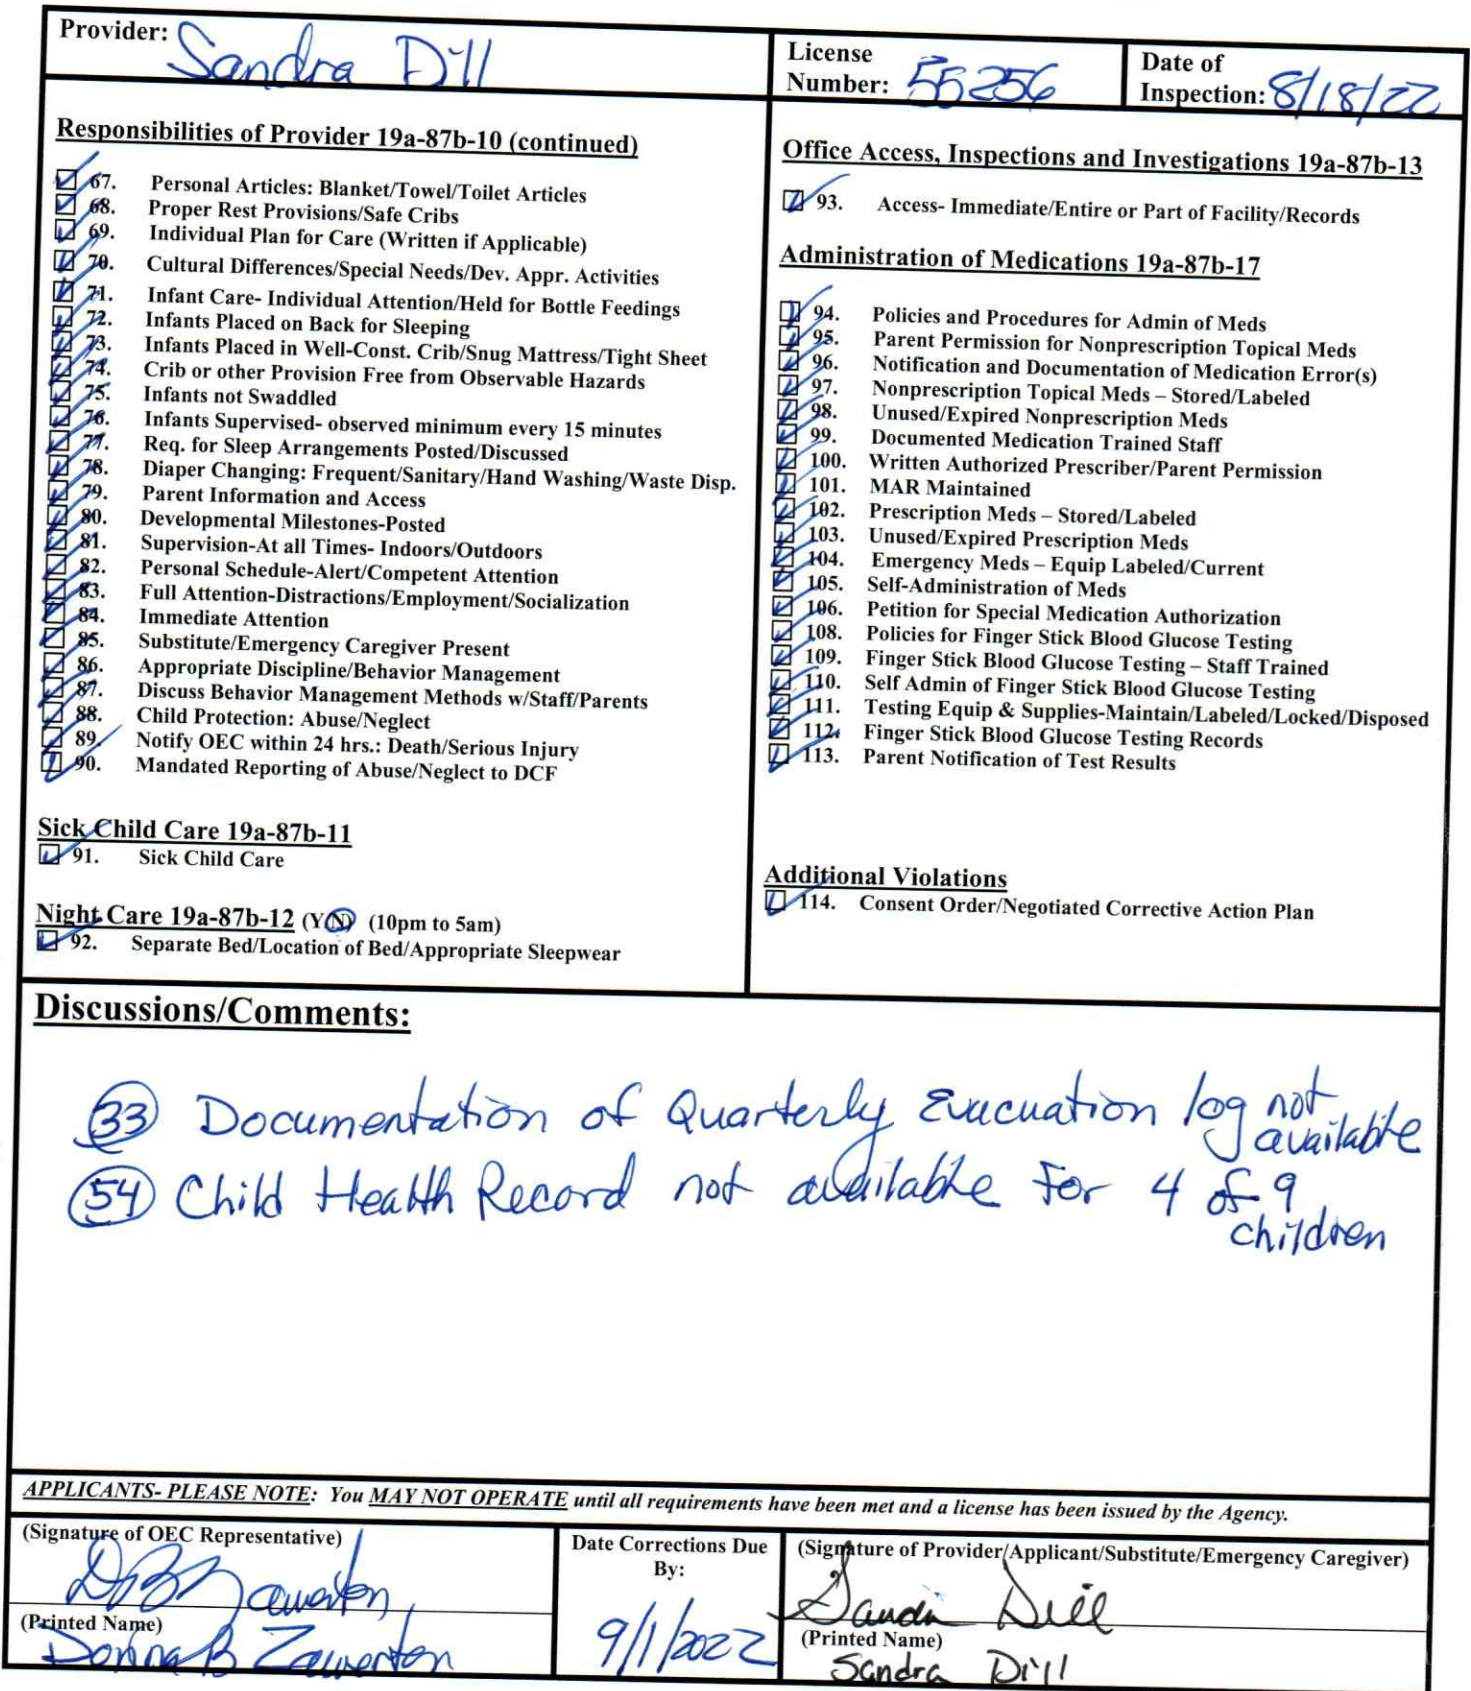 Provider: Sandra Dill
License Number: 55256
Date of Inspection: 8/18/22
Responsibilities of Provider 19a-87b-10 (continued)
67. Personal Articles: Blanket/Towel/Toilet Articles
68. Proper Rest Provisions/Safe Cribs
69. Individual Plan for Care (Written if Applicable)
70. Cultural Differences/Special Needs/Dev. Appr. Activities
71. Infant Care- Individual Attention/Held for Bottle Feedings
72. Infants Placed on Back for Sleeping
73. Infants Placed in Well-Const. Crib/Snug Mattress/Tight Sheet
74. Crib or other Provision Free from Observable Hazards
75. Infants not Swaddled
76. Infants Supervised- observed minimum every 15 minutes
77. Req. for Sleep Arrangements Posted/Discussed
78. Diaper Changing: Frequent/Sanitary/Hand Washing/Waste Disp.
79. Parent Information and Access
80. Developmental Milestones-Posted
81. Supervision-At all Times- Indoors/Outdoors
82. Personal Schedule-Alert/Competent Attention
83. Full Attention-Distractions/Employment/Socialization
84. Immediate Attention
85. Substitute/Emergency Caregiver Present
86. Appropriate Discipline/Behavior Management
87. Discuss Behavior Management Methods w/Staff/Parents
88. Child Protection: Abuse/Neglect
89. Notify OEC within 24 hrs.: Death/Serious Injury
90. Mandated Reporting of Abuse/Neglect to DCF
Sick Child Care 19a-87b-11
91. Sick Child Care
Night Care 19a-87b-12 (Y/N) (10pm to 5am)
92. Separate Bed/Location of Bed/Appropriate Sleepwear
Office Access, Inspections and Investigations 19a-87b-13
93. Access- Immediate/Entire or Part of Facility/Records
Administration of Medications 19a-87b-17
94. Policies and Procedures for Admin of Meds
95. Parent Permission for Nonprescription Topical Meds
96. Notification and Documentation of Medication Error(s)
97. Nonprescription Topical Meds – Stored/Labeled
98. Unused/Expired Nonprescription Meds
99. Documented Medication Trained Staff
100. Written Authorized Prescriber/Parent Permission
101. MAR Maintained
102. Prescription Meds – Stored/Labeled
103. Unused/Expired Prescription Meds
104. Emergency Meds – Equip Labeled/Current
105. Self-Administration of Meds
106. Petition for Special Medication Authorization
108. Policies for Finger Stick Blood Glucose Testing
109. Finger Stick Blood Glucose Testing – Staff Trained
110. Self Admin of Finger Stick Blood Glucose Testing
111. Testing Equip & Supplies-Maintain/Labeled/Locked/Disposed
112. Finger Stick Blood Glucose Testing Records
113. Parent Notification of Test Results
Additional Violations
114. Consent Order/Negotiated Corrective Action Plan
Discussions/Comments:
33 Documentation of Quarterly Evacuation log not available
54 Child Health Record not available for 4 of 9 children
APPLICANTS- PLEASE NOTE: You MAY NOT OPERATE until all requirements have been met and a license has been issued by the Agency.
(Signature of OEC Representative)
(Printed Name)
Donna B Zawerton
Date Corrections Due By:
9/1/2022
(Signature of Provider/Applicant/Substitute/Emergency Caregiver)
Sandra Dill
(Printed Name)
Sandra Dill